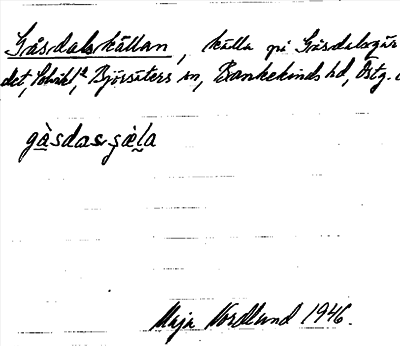 Gåsdalskällan, källa på Gåsdalsgär
det, Björsäters sn, Bankekinds hd, Östg.
gàsdasçæ̀la
Maja Nordlund 1946.